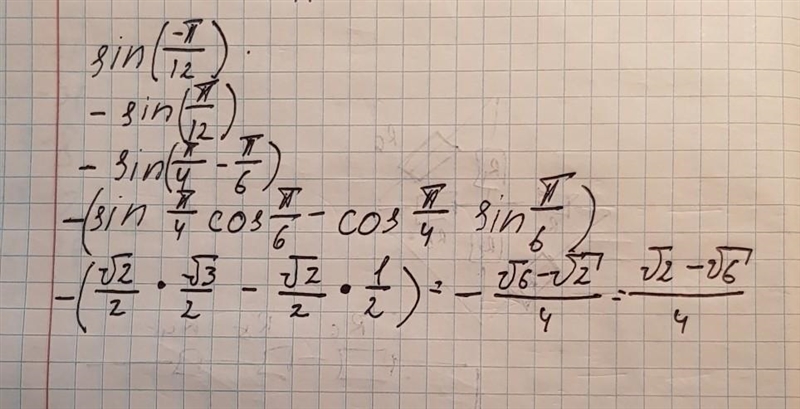 sin(-π/12).
- sin(π/12)
- sin(π/4 - π/6)
-(sin π/4 cos π/6 - cos π/4 sin π/6)
-(√2/2 • √3/2 - √2/2 • 1/2) = - (√6-√2)/4 = (√2-√6)/4